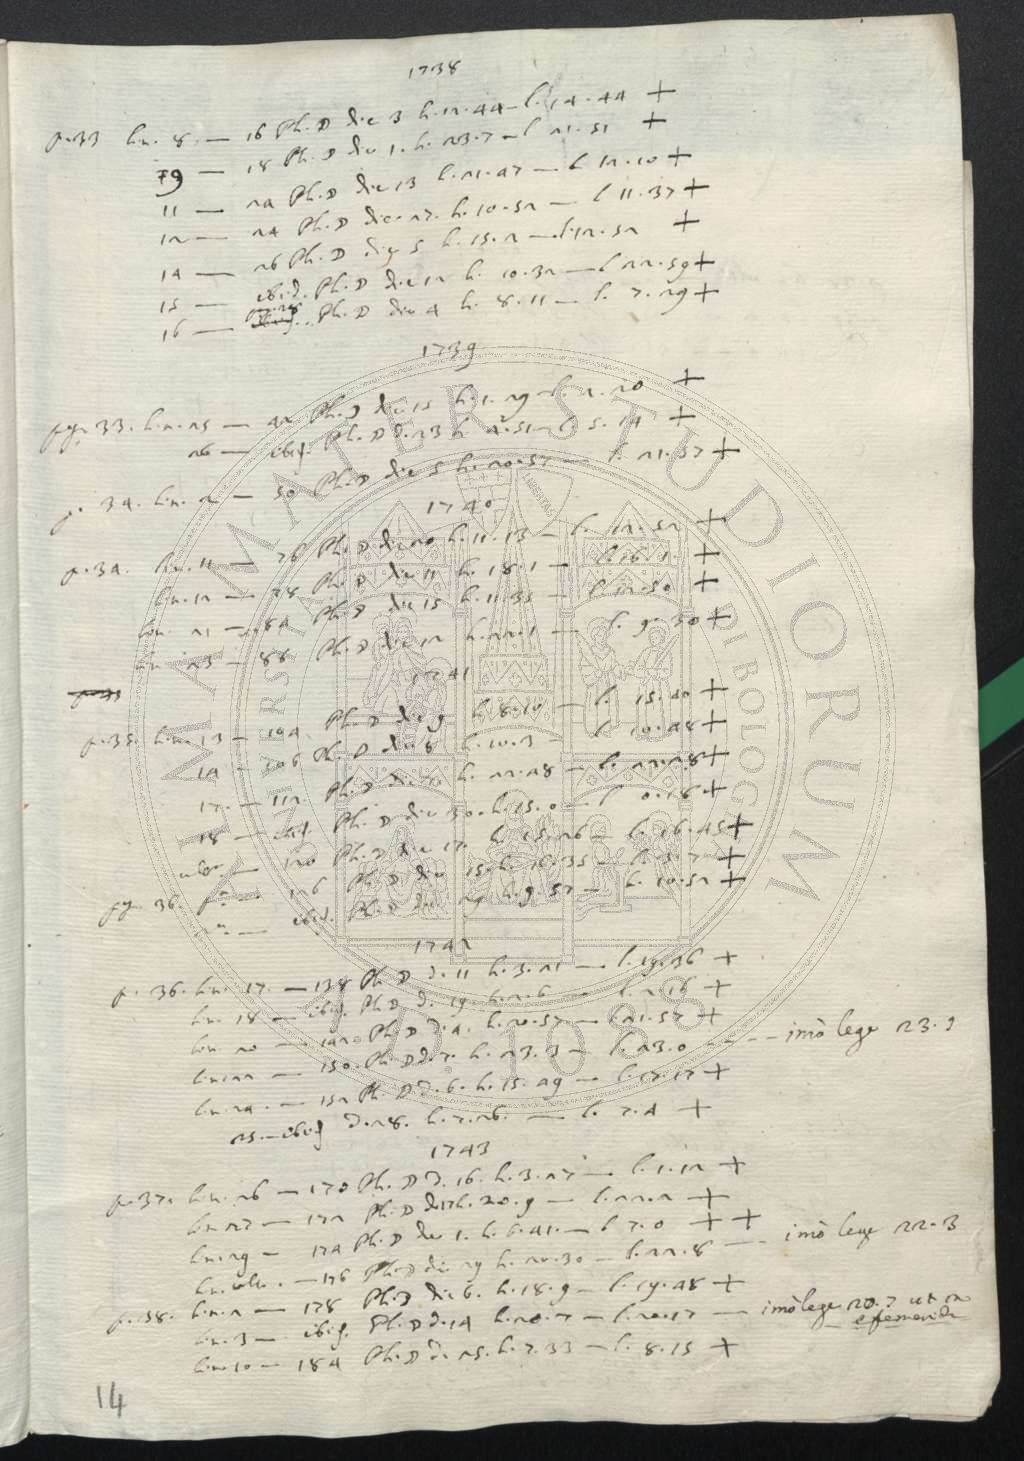 1738
p. 33 lin. 8. — 16 Ph. D die 3 h. 12. 44 — l. 14. 44 +
9 — 18 Ph. D die 1. h. 23. 7 — l 21. 51 +
11 — 24 Ph. D die 13 h. 21. 47 — l. 12. 10 +
12 — 24 Ph. D die. 27. h. 10. 52 — l 11. 37 +
14 — 26 Ph. D die 5 h. 15. 2 — l. 12. 52 +
15 — ibid. Ph. D die 12 h. 10. 32 — l 22. 59 +
16 — Ph. D die 4 h. 8. 11 — l. 7. 29 +
1739
pag. 33. lin. 25 — 42 Ph. D die 15 h. 1. 29 — l. 2. 20 +
26 — ibid. Ph. D d. 23 h 4. 51 — l 5. 14 +
p. 34. lin. 2 — 50 Ph. D die 5 h. 20. 57 — l. 21. 57 +
1740
p. 34. lin. 11 — 76 Ph. D die 20 h. 11. 13 — l. 12. 52 +
lin. 12 — 78 Ph. D die 11 h. 18. 1 — l. 16. 1 +
lin. 21 — 84 Ph. D die 15 h. 11. 35 — l. 12. 50 +
lin 23 — 88 Ph. D die 12 h. 22. 1 — l. 9. 30 +
1741
p. 35. lin. 13 — 104 Ph. D die 9 h. 8. 10 — l. 15. 42 +
14 — 106 Ph. D die 8 h. 10. 3 — l 10. 48 +
17. — 112 Ph. D die h. 22. 48 — l. 22. 28 +
18 — ibid. Ph. D die 30. h. 15. 0 — l 0. 16 +
ult. — 120 Ph. D die 17. h. 15. 26 — l. 16. 45 +
pag. 36. pa. — 126 Ph. D die 15. h. 16. 35 — l. 3. 7 +
2a. — ibid. Ph. D die 29 h. 9. 57 — l. 10. 52 +
1742
p. 36. lin. 17. — 138 Ph D d. 11 h. 3. 21 — l. 19. 36 +
lin. 18 — ibid. Ph D d. 19. h. 2. 6 — l. 2. 16 +
lin 20 — 142. Ph D d. 4. h. 20. 57 — l. 21. 57 +
lin. 22 — 150. Ph D d. 7. h. 23. 3 — l. 23. 0 - - - - imò lege 23. 9
lin. 24. — 152 Ph. D d. 6. h. 15. 49 — l. 17. 17 +
25. — ibid d. 28. h. 7. 26. — l. 7. 4 +
1743
p. 37. lin. 26 — 170 Ph. D d. 16. h. 3. 27 — l. 1. 12 +
lin 27 — 172 Ph. D d. 17 h. 20. 9 — l. 22. 2 +
lin. 29 — 174 Ph. D die 1. h. 6. 41. — l 7. 0 + +
lin. ult. — 176 Ph. D die 29 h. 20. 30 — l. 22. 8 — imò lege 22. 3
p. 38. lin. 2 — 178 Ph. D die 6. h. 18. 9 — l. 19. 48 +
lin. 3 — ibid. Ph. D d. 14 h. 20. 7 — l. 20. 17 — imò lege 20. 7 ut in
efemeride
lin. 10 — 184 Ph. D d. 25. h. 7. 33 — l. 8. 15 +
14
ALMA MATER STUDIORUM
UNIVERSITÀ DI BOLOGNA
A.D. 1088
LIBERTAS